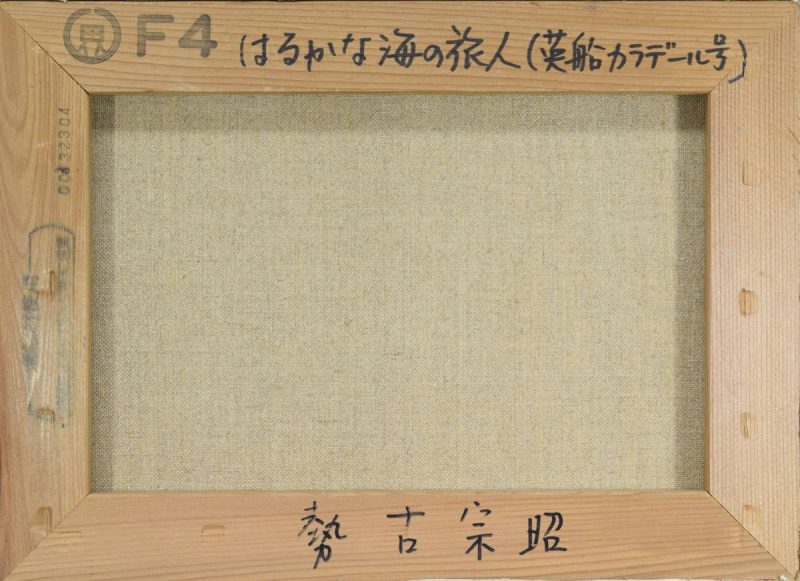 F4 はるかな海の旅人(英船カラデール号)
0032304
勢古宗昭